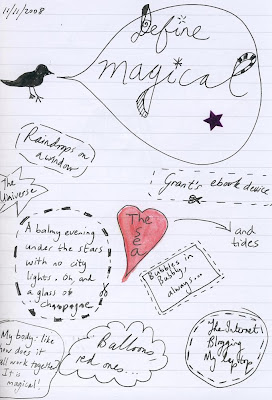 11/11/2008
Define
magical
Raindrops on
a window
The
Universe
Grant's ebook device
The
sea
and
tides
A balmy evening
under the stars
with no city
lights. Oh and
a glass of
champagne
Bubbles in
Bubbly,
always...
My body: like
how does it
all work together?
It is
magical!
Balloons
red ones...
The Internet!
Blogging
My laptop